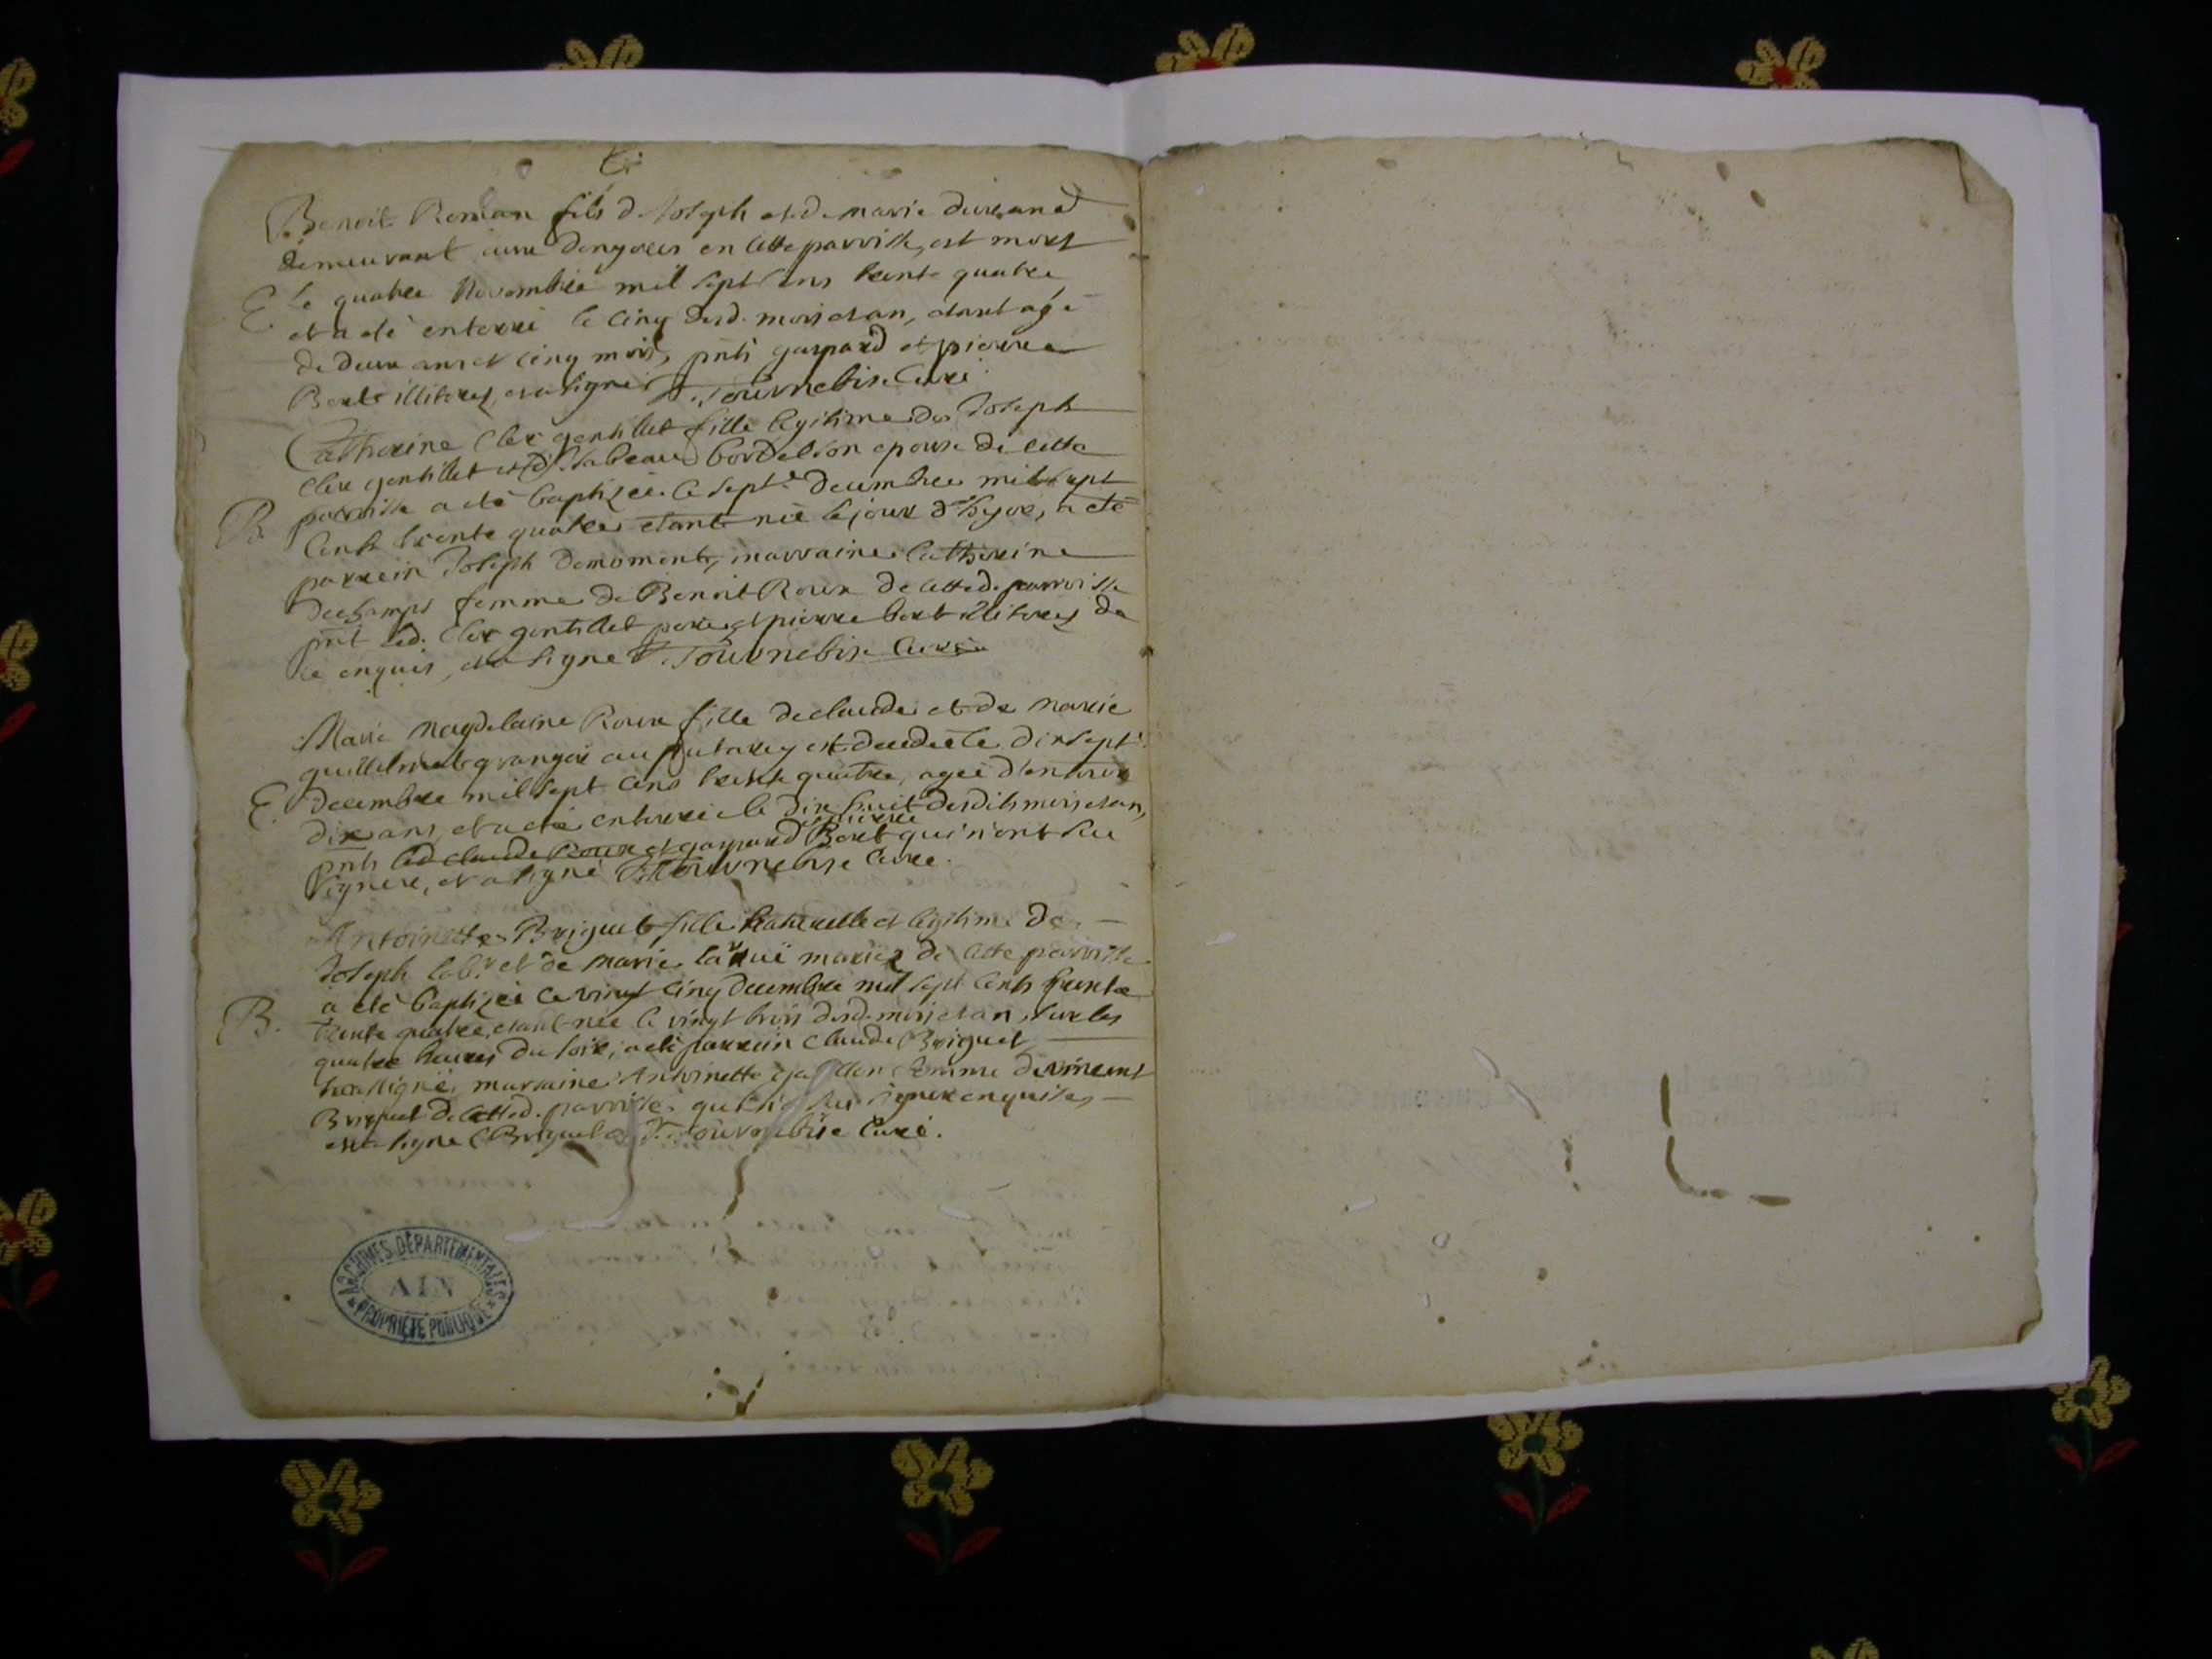 Benoit Roman fils d Joseph et de marie durand
demeurant en cette parroisse, est mort
E. Le quatre Novembre mil sept cens trente quatre
et a eté enterré le cinq desd. mois et an, étant agé
de deux ans et cinq mois, pnts gaspard et pierre
Boret illiterez, et a signé Tournebise Curé
Catherine Cler gentillet fille legitime de Joseph
Cler gentillet et d'Isabeau bordelson epouse de cette
B. parroisse a eté baptizée le sept.e decembre mil sept
Cents trente quatre etant née le jour d'hyer, a eté
parrein Joseph Demoment, marraine Catherine
Dechamps femme de Benoit Roux de cette d. parroisse
pnt led. Cler gentillet pere et pierre boret illiterez de
ce enquis, et a signé Tournebise Curé
Marie Magdelaine Roux fille de claude et de marie
guillelmet granger au est decedée le dix sept
E. Decembre mil sept cens trente quatre, agée d'environ
dix ans, et a eté enterrée le dix huit desdits mois et an,
pnts led claude Roux et gaspard et pierre Boret qui n'ont sceu
signer, et a signé Tournebise Curé.
Antoinette Briguet fille naturelle et legitime de
Joseph lab.r et de marie mariez de cette parroisse
a eté baptizée ce vingt cinq decembre mil sept cents trente
B. trente quatre, etant née le vingt trois desd. mois et an, sur les
quatre heures du soir, a eté parrein Claude Briguet
soussigné, marraine Antoinette femme de vincent
Briguet de cette d. parroisse qui n'a sceu signer enquise,
et a signé C Briguet Tournebise Curé.
ARCHIVES DÉPARTEMENTALES
AIN
PROPRIÉTÉ PUBLIQUE